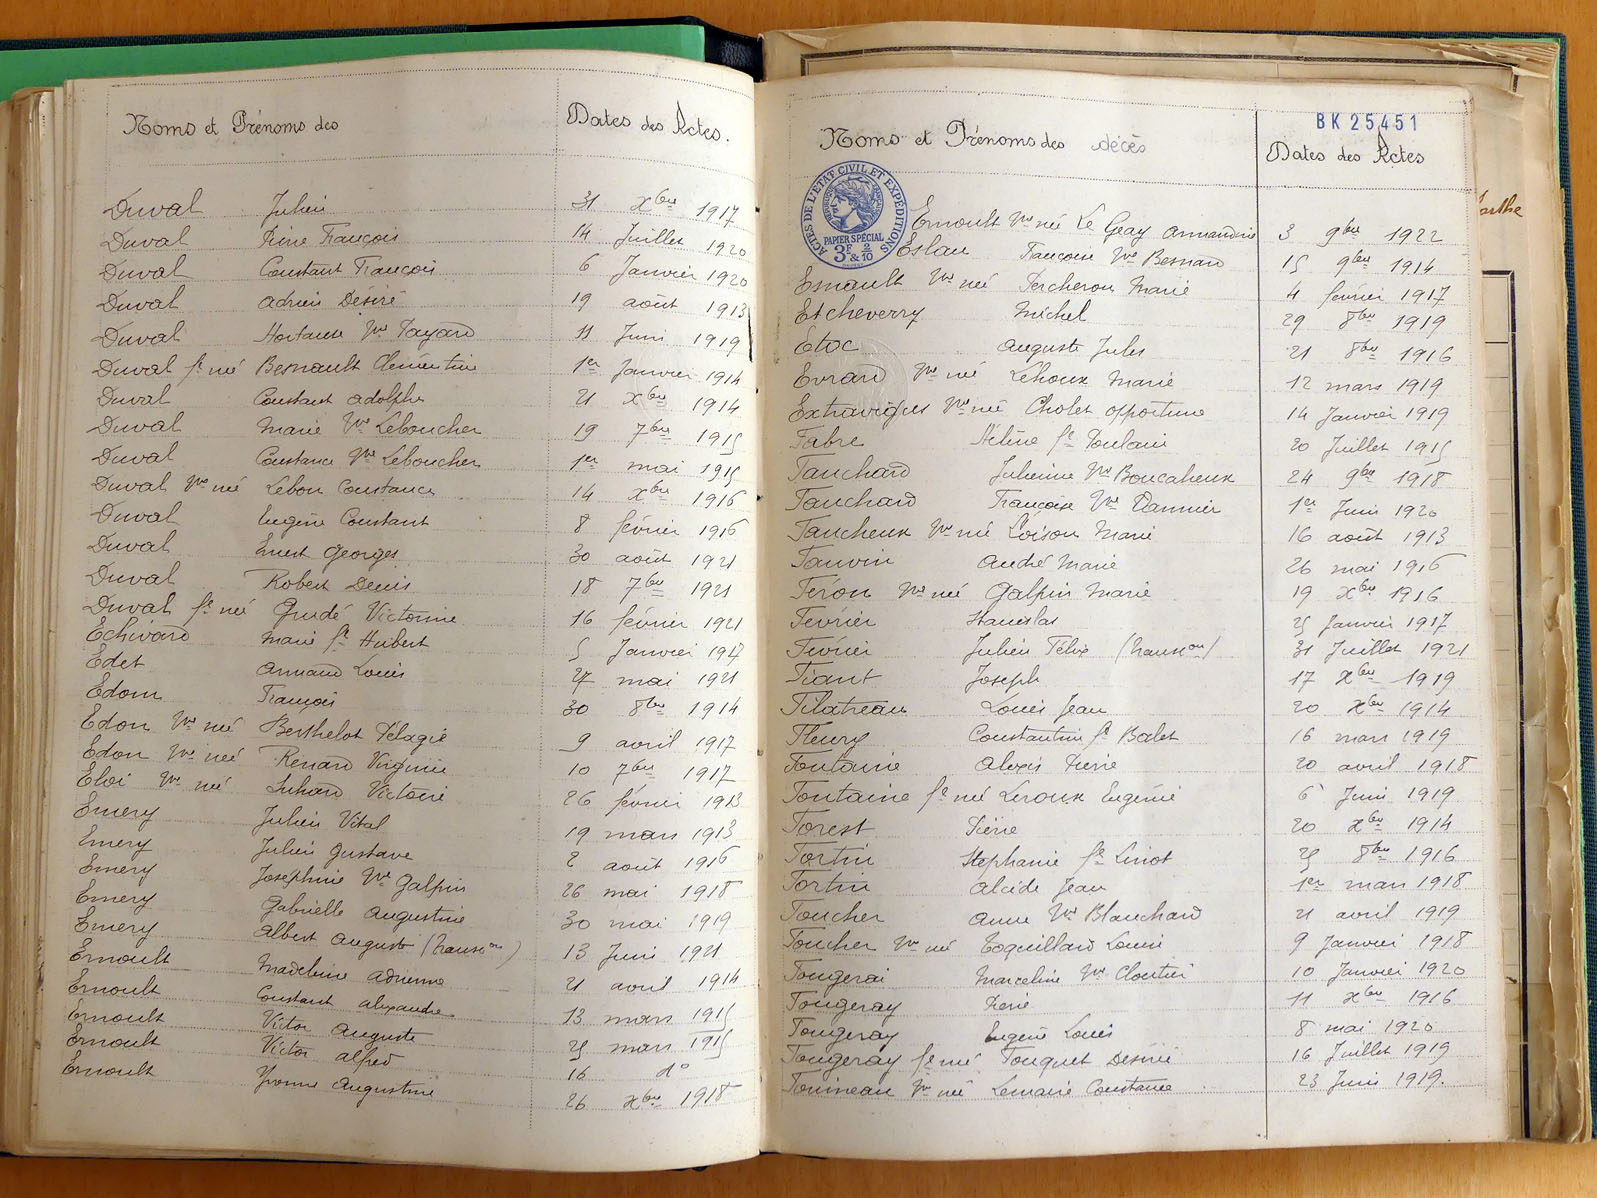 Noms et Prénoms des
Dates des Actes.
Duval Julien 31 Xbre 1917
Duval Pierre François 14 Juillet 1920
Duval Constant François 6 Janvier 1920
Duval Adrien Désiré 19 août 1913
Duval Hortense Vve Tayard 11 Juin 1919
Duval fe née Besnault Clémentine 1er Janvier 1914
Duval Constant Adolphe 21 Xbre 1914
Duval Marie Vve Leboucher 19 7bre 1915
Duval Constance Vve Leboucher 1er mai 1915
Duval Vve née Lebon Constance 14 Xbre 1916
Duval Eugène Constant 8 février 1916
Duval Ernest Georges 30 août 1921
Duval Robert Denis 18 7bre 1921
Duval fe née Grudé Victorine 16 février 1921
Echivard Marie fe Hubert 5 Janvier 1917
Edet Armand Louis 27 mai 1921
Edom François 30 8bre 1914
Edon Vve née Berthelot Pélagie 9 avril 1917
Edon Vve née Renard Virginie 10 7bre 1917
Eloi Vve née Suhard Victoire 26 février 1913
Emery Julien Vital 19 mars 1913
Emery Julien Gustave 2 août 1916
Emery Joséphine Vve Galpin 26 mai 1918
Emery Gabrielle Augustine 30 mai 1919
Emery Albert Auguste (transon) 13 Juin 1921
Ernoult Madeleine Adrienne 21 avril 1914
Ernoult Constant Alexandre 13 mars 1915
Ernoult Victor Auguste 25 mars 1915
Ernoult Victor Alfred 16 do
Ernoult Yvonne Augustine 26 Xbre 1918
BK 25451
Noms et Prénoms des décès
Dates des Actes
ACTES DE L'ETAT CIVIL ET EXPÉDITIONS
PAPIER SPÉCIAL
3F & 2/10
Ernoult Vve née Le Geay Armandine 3 9bre 1922
Eslau Françoise Vve Besnard 15 9bre 1914
Esnault Vve née Percheron Marie 4 février 1917
Etcheverry Michel 29 8bre 1919
Etoc Auguste Jules 21 8bre 1916
Evrard Vve née Lehoux Marie 12 mars 1919
Extravigues Vve née Cholet Opportune 14 Janvier 1919
Fabre Hélène fe Poulain 20 Juillet 1915
Fauchard Julienne Vve Boucaheux 24 9bre 1918
Fauchard Françoise Vve Dannier 1er Juin 1920
Faucheux Vve née Loison Marie 16 août 1913
Fauvin André Marie 26 mai 1916
Féron Vve née Galpin Marie 19 Xbre 1916
Février Stanislas 25 Janvier 1917
Février Julien Félix (transon) 31 Juillet 1921
Fiant Joseph 17 Xbre 1919
Filatreau Louis Jean 20 Xbre 1914
Fleury Constantine fe Balet 16 mars 1919
Fontaine Alexis Pierre 20 avril 1918
Fontaine fe née Leroux Eugénie 6 Juin 1919
Forest Pierre 20 Xbre 1914
Fortin Stéphanie fe Liriot 25 8bre 1916
Fortin Alcide Jean 1er mars 1918
Foucher Anne Vve Blanchard 21 avril 1919
Foucher Vve née Coquillard Louise 9 Janvier 1918
Fougerai Marceline Vve Cloutier 10 Janvier 1920
Fougeray René 11 Xbre 1916
Fougeray Eugène Louis 8 mai 1920
Fougeray fe née Fouquet Désirée 16 Juillet 1919
Fouineau Vve née Lemaire Constance 23 Juin 1919.